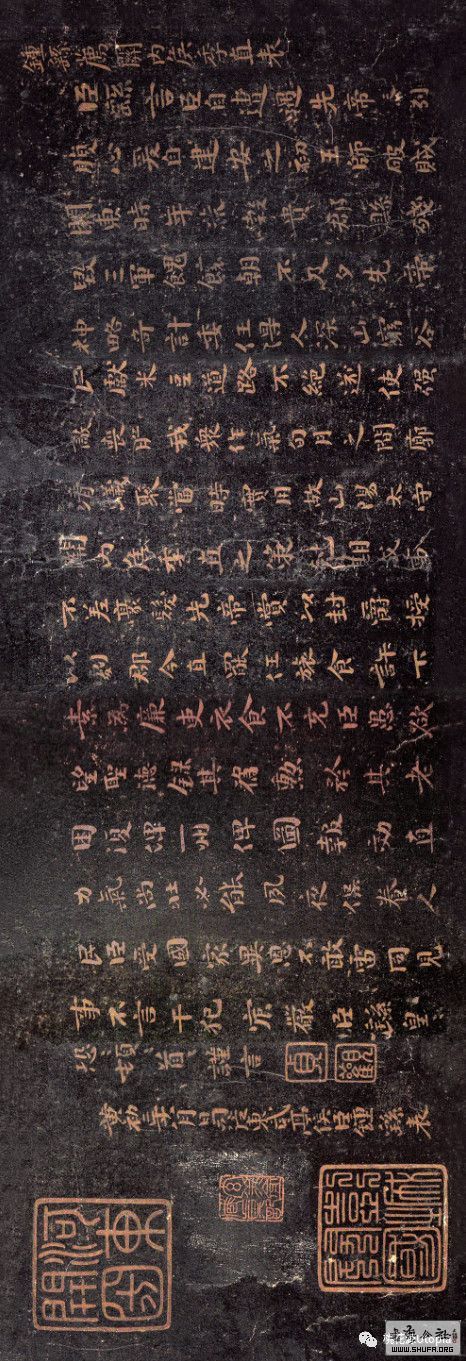 鍾繇薦關內侯季直表
臣繇言臣自遭遇先帝列
腹心爰自建安之初王師破賊
關東時年荒穀貴郡縣殘
毀三軍餽饟朝不及夕先帝
神略奇計委任得人深山窮谷
民獻米豆道路不絕遂使強
敵喪膽我衆作氣旬月之間廓
清蟻聚當時實用故山陽太守
關內侯季直之策剋期成事
不差豪髮先帝賞以封爵授
以劇郡今直罷任旅食許下
素為廉吏衣食不充臣愚欲
望聖德錄其舊勳矜其老
困復俾一州俾圖報效直
力氣尚壯必能夙夜保養人
民臣受國家異恩不敢雷同見
事不言干犯宸嚴臣繇皇
恐頓首謹言
貞觀
黃初二年八月日司徒東武亭侯臣鍾繇表
WWW.SHUFA.ORG